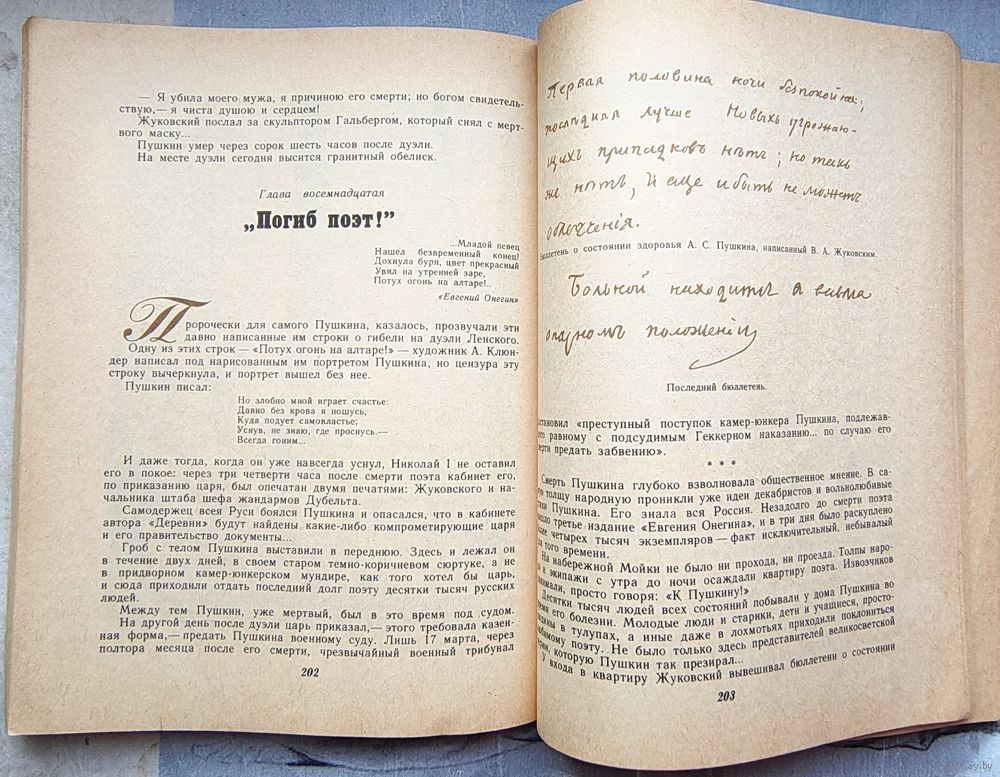 — Я убила моего мужа, я причиною его смерти; но богом свидетель-
ствую,— я чиста душою и сердцем!
Жуковский послал за скульптором Гальбергом, который снял с мерт-
вого маску...
Пушкин умер через сорок шесть часов после дуэли.
На месте дуэли сегодня высится гранитный обелиск.
Глава восемнадцатая
„Погиб поэт!”
...Младой певец
Нашел безвременный конец!
Дохнула буря, цвет прекрасный
Увял на утренней заре,
Потух огонь на алтаре!..
«Евгений Онегин»
Пророчески для самого Пушкина, казалось, прозвучали эти
давно написанные им строки о гибели на дуэли Ленского.
Одну из этих строк — «Потух огонь на алтаре!» — художник А. Клюн-
дер написал под нарисованным им портретом Пушкина, но цензура эту
строку вычеркнула, и портрет вышел без нее.
Пушкин писал:
Но злобно мной играет счастье:
Давно без крова я ношусь,
Куда подует самовластье;
Уснув, не знаю, где проснусь.—
Всегда гоним...
И даже тогда, когда он уже навсегда уснул, Николай I не оставил
его в покое: через три четверти часа после смерти поэта кабинет его,
по приказанию царя, был опечатан двумя печатями: Жуковского и на-
чальника штаба шефа жандармов Дубельта.
Самодержец всея Руси боялся Пушкина и опасался, что в кабинете
автора «Деревни» будут найдены какие-либо компрометирующие царя
и его правительство документы...
Гроб с телом Пушкина выставили в переднюю. Здесь и лежал он
в течение двух дней, в своем старом темно-коричневом сюртуке, а не
в придворном камер-юнкерском мундире, как того хотел бы царь,
и сюда приходили отдать последний долг поэту десятки тысяч русских
людей.
Между тем Пушкин, уже мертвый, был в это время под судом.
На другой день после дуэли царь приказал,— этого требовала казен-
ная форма,— предать Пушкина военному суду. Лишь 17 марта, через
полтора месяца после его смерти, чрезвычайный военный трибунал
202
Первая половина ночи безпокойна;
последняя лучше Новыхъ угрожаю-
щихъ припадковъ нѣтъ; но такъ
же нѣтъ, и еще и быть не можетъ
облегченія.
Бюллетень о состоянии здоровья А. С. Пушкина, написанный В. А. Жуковским.
Больной находится в весьма
опасномъ положеніи
Последний бюллетень.
становил «преступный поступок камер-юнкера Пушкина, подлежав-
равному с подсудимым Геккерном наказанию... по случаю его
смерти предать забвению».
* * *
Смерть Пушкина глубоко взволновала общественное мнение. В са-
толщу народную проникли уже идеи декабристов и вольнолюбивые
Пушкина. Его знала вся Россия. Незадолго до смерти поэта
третье издание «Евгения Онегина», и в три дня было раскуплено
четырех тысяч экземпляров — факт исключительный, небывалый
того времени.
На набережной Мойки не было ни прохода, ни проезда. Толпы наро-
и экипажи с утра до ночи осаждали квартиру поэта. Извозчиков
просто говоря: «К Пушкину!»
Десятки тысяч людей всех состояний побывали у дома Пушкина во
его болезни. Молодые люди и старики, дети и учащиеся, просто-
в тулупах, а иные даже в лохмотьях приходили поклониться
любимому поэту. Не было только здесь представителей великосветской
которую Пушкин так презирал...
У входа в квартиру Жуковский вывешивал бюллетени о состоянии
203